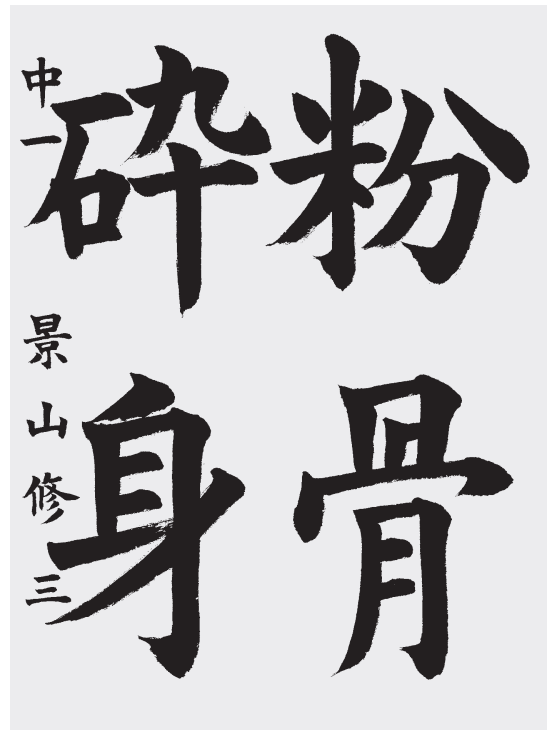 粉骨
砕身
中一 景山修三